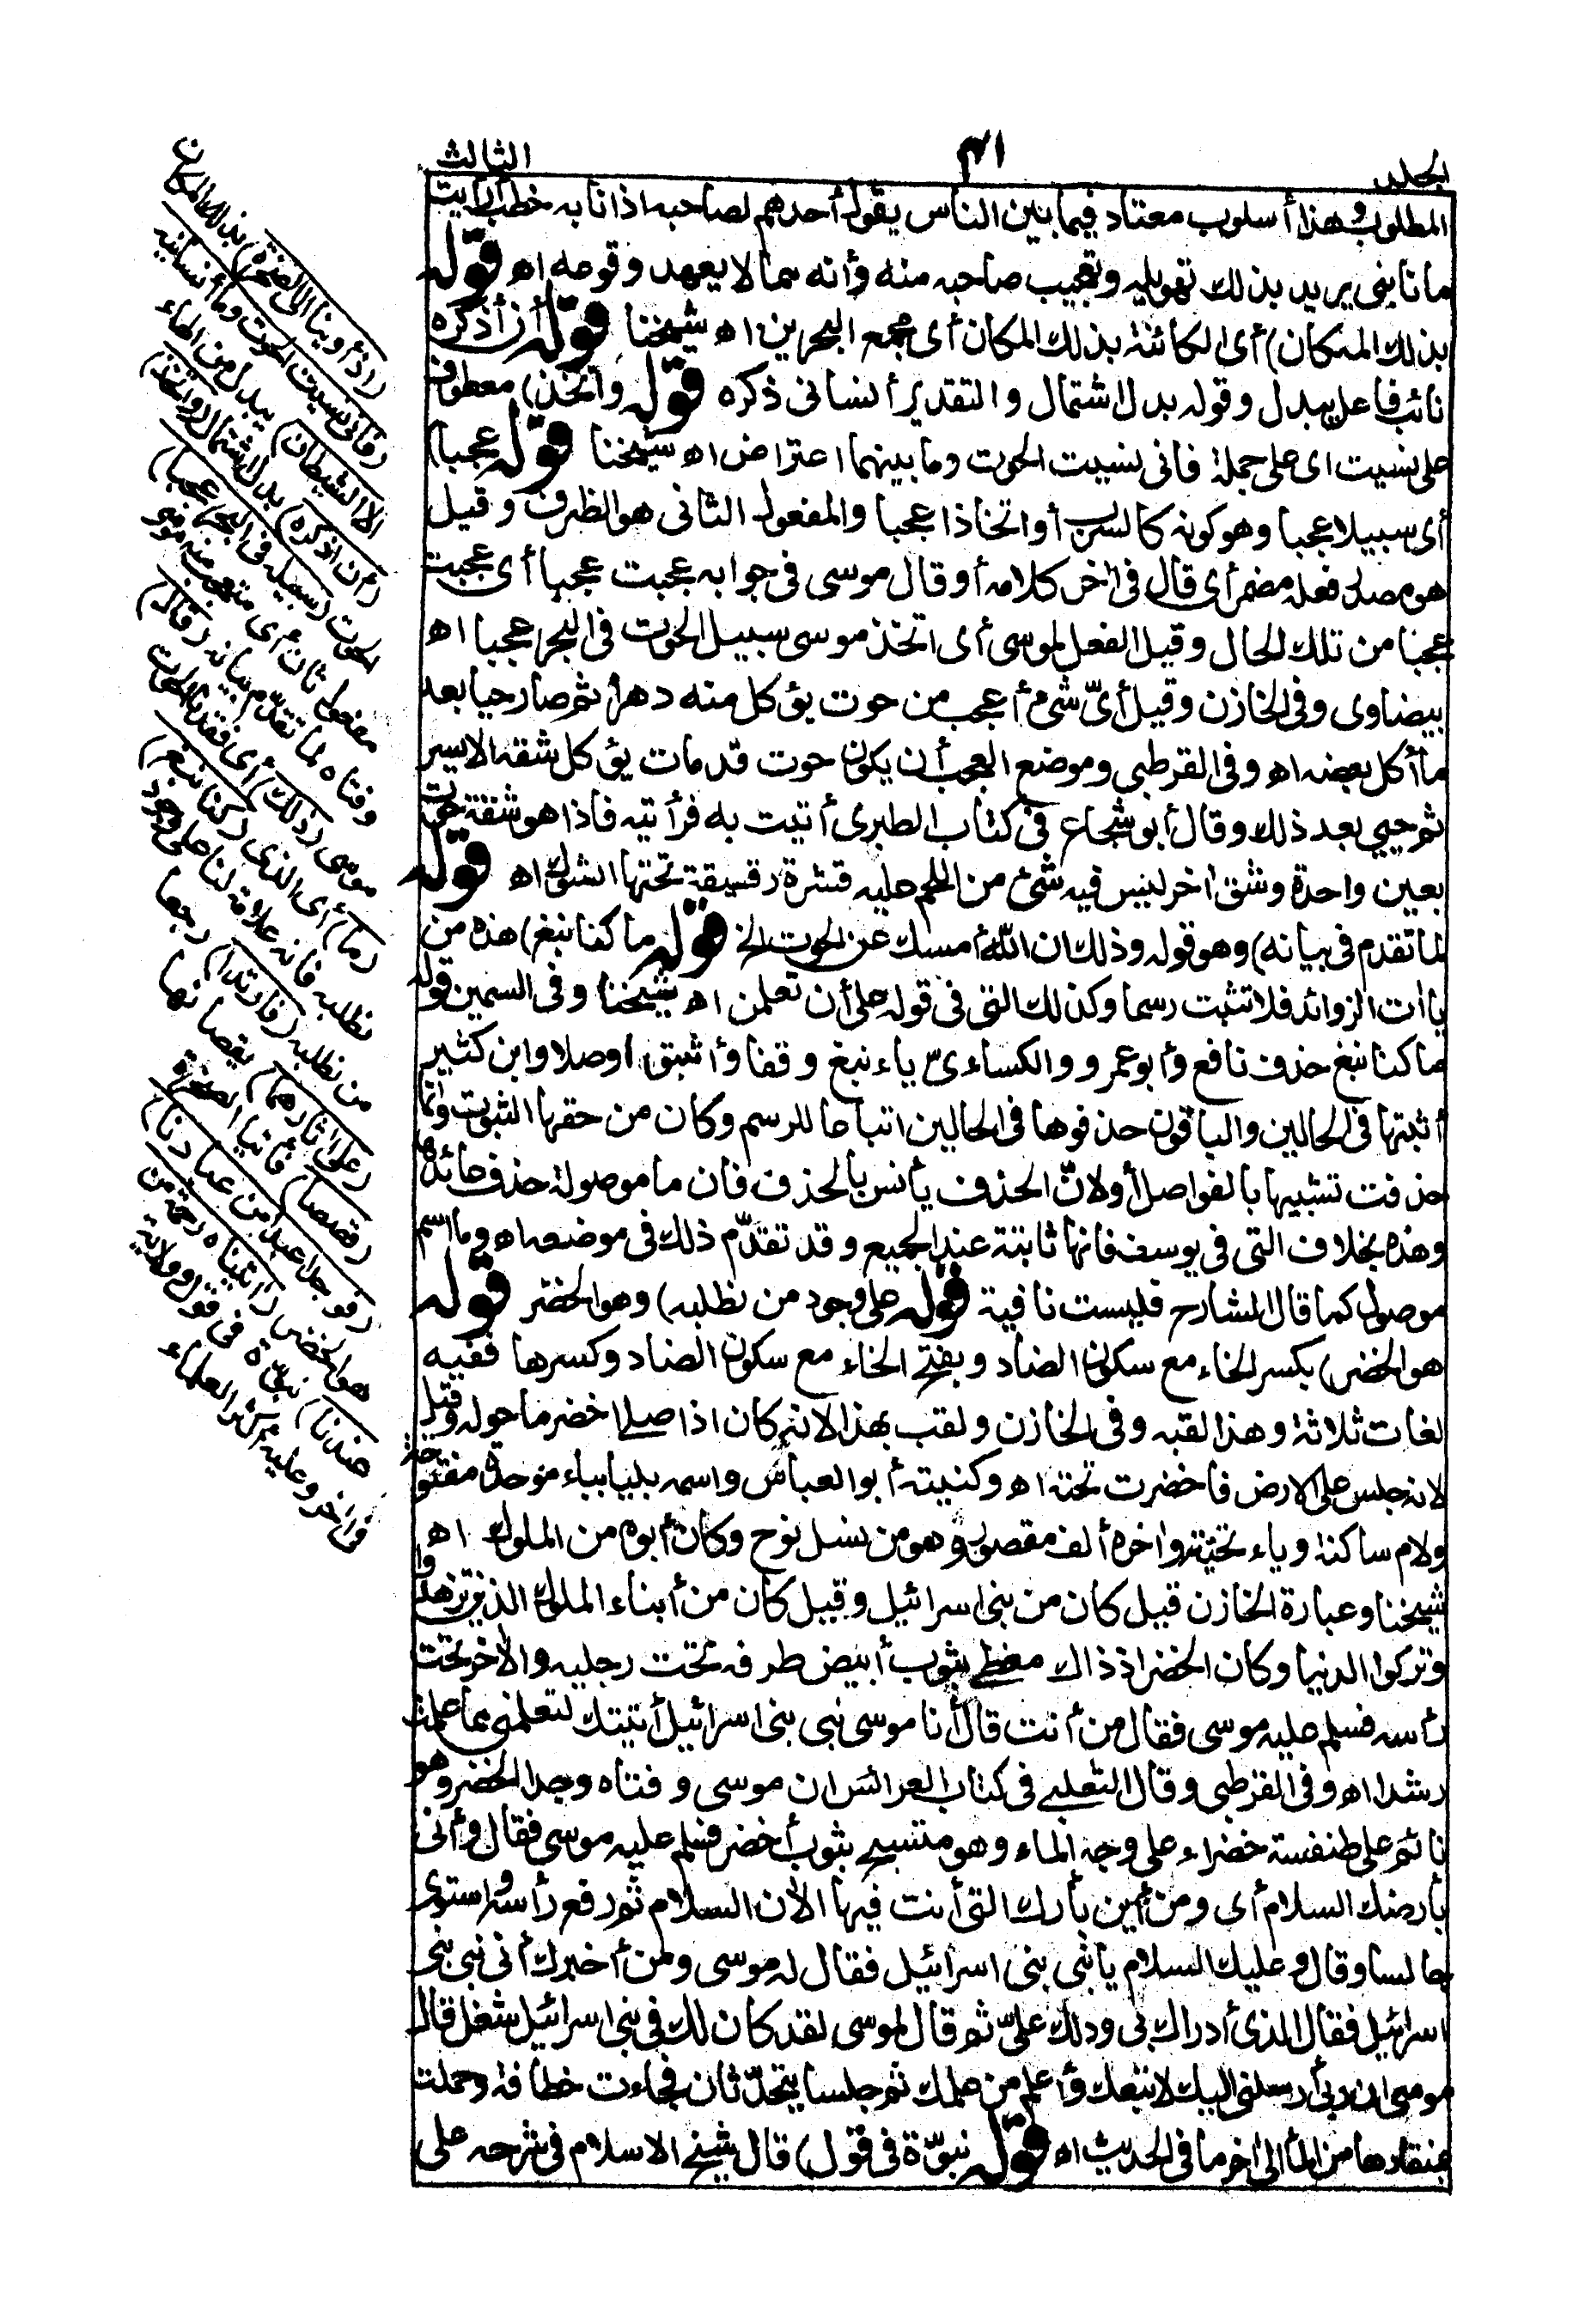 الجلد
٣١
الثالث
المطلوب وهذا أسلوب معتاد فيما بين الناس يقول أحدهم لصاحبه اذا نابه خطب أرأيت
ما نابنى يريد بذلك تهويله وتعجيب صاحبه منه وأنه مما لا يعهد وقوعه اه قوله
بذلك المكان) أى الكائنة بذلك المكان أى مجمع البحرين اه شيخنا قوله أن أذكره
نائب فاعل يبدل وقوله بدل اشتمال والتقدير أنسانى ذكره قوله واتخذ) معطوف
على نسيت اى على جملة فانى نسيت الحوت وما بينهما اعتراض اه شيخنا قوله عجبا)
أى سبيلا عجبا وهو كونه كالسرب أو اتخاذا عجبا والمفعول الثانى هو الظرف وقيل
هو مصدر فعله مضمر أى قال فى اٰخر كلامه أو قال موسى فى جوابه عجبت عجبا أى عجبت
عجبا من تلك الحال وقيل الفعل لموسى أى اتخذ موسى سبيل الحوت فى البحر عجبا اه
بيضاوى وفى الخازن وقيل أىّ شئ أعجب من حوت يؤكل منه دهرا ثم صار حيا بعد
ما أكل بعضه اه وفى القرطبى وموضع العجب أن يكون حوت قد مات يؤكل شقه الايسر
ثم حيي بعد ذلك وقال أبو شجاع فى كتاب الطبرى أتيت به فرأيته فاذا هو شقة حوت
بعين واحدة وشق اٰخر ليس فيه شئ من اللحم عليه قشرة رقيقة تحتها الشوك اه قوله
لما تقدم فى بيانه) وهو قوله وذلك ان اللّه أمسك عن الحوت الخ قوله ما كنا نبغ) هذه من
ياٰات الزوائد فلا تثبت رسما وكذلك التى فى قوله على أن تعلمن اه شيخنا وفى السمين قوله
ما كنا نبغ حذف نافع وأبو عمرو والكساءىّ ياء نبغ وقفا وأثبتوا وصلا وابن كثير
أثبتها فى الحالين والباقون حذفوها فى الحالين اتباعا للرسم وكان من حقها الثبوت وانما
حذفت تشبيها بالفواصل أو لانّ الحذف يأنس بالحذف فان ما موصولة حذف عائدها
وهذه بخلاف التى فى يوسف فانها ثابتة عند الجميع وقد تقدّم ذلك فى موضعه اه وما اسم
موصول كما قال الشارح فليست نافية قوله على وجود من نطلبه) وهو الخضر قوله
هو الخضر) بكسر الخاء مع سكون الضاد وبفتح الخاء مع سكون الضاد وكسرها ففيه
لغات ثلاثة وهذا لقبه وفى الخازن ولقب بهذا لانه كان اذا صلى اخضر ما حوله وقيل
لانه جلس على الارض فاخضرت تحته اه وكنيته أبو العباس واسمه بليا بباء موحدة مفتوحة
ولام ساكنة وياء تحتية واٰخره ألف مقصور وهو من نسل نوح وكان أبوه من الملوك اه
شيخنا وعبارة الخازن قيل كان من بنى اسرائيل وقيل كان من أبناء الملوك الذين تزهدوا
وتركوا الدنيا وكان الخضر اذ ذاك مغطى بثوب أبيض طرفه تحت رجليه والاٰخر تحت
رأسه فسلم عليه موسى فقال من أنت قال أنا موسى نبى بنى اسرائيل أتيتك لتعلمنى مما علمت
رشدا اه وفى القرطبى وقال الثعلبى فى كتاب العرائس ان موسى وفتاه وجدا الخضر وهو
نائم على طنفسة خضراء على وجه الماء وهو متسجى بثوب أخضر فسلم عليه موسى فقال وأنى
بأرضك السلام أى ومن أين بأرك التى أنت فيها الاٰن السلام ثم رفع رأسه واستوى
جالسا وقال وعليك السلام يا نبى بنى اسرائيل فقال له موسى ومن أخبرك أنى نبى بنى
اسرائيل فقال الذى أدراك بى ودلك علىّ ثم قال لموسى لقد كان لك فى بنى اسرائيل شغل قال
موسى ان ربى أرسلنى اليك لاتبعك وأتعلم من علمك ثم جلسا يتحدّثان فجاءت خطافة وحملت
بمنقارها من الماء الى اٰخر ما فى الحديث اه قوله نبوّة فى قول) قال شيخ الاسلام فى شرحه على
(اذ أوينا الى الصخرة) بذلك المكان
(فانى نسيت الحوت وما أنسانيه
الا الشيطان) يبدل من الهاء
(أن اذكره) بدل اشتمال (واتخذ)
الحوت (سبيله فى البحر عجبا)
مفعول ثان أى متعجب منه موسى
وفتاه لما تقدّم بيانه (قال)
موسى (ذلك) أى فقدنا الحوت
(ما) أى الذى (كنا نبغ)
نطلبه فانه علامة لنا على وجود
من نطلبه (فارتدا) رجعا
(على اٰثارهما) يقصانها
(قصصا) فأتيا الصخرة
(فوجدا عبدا من عبادنا)
هو الخضر (اٰتيناه رحمة من
عندنا) نبوّة فى قول وولاية
فى اٰخر وعليه أكثر العلماء